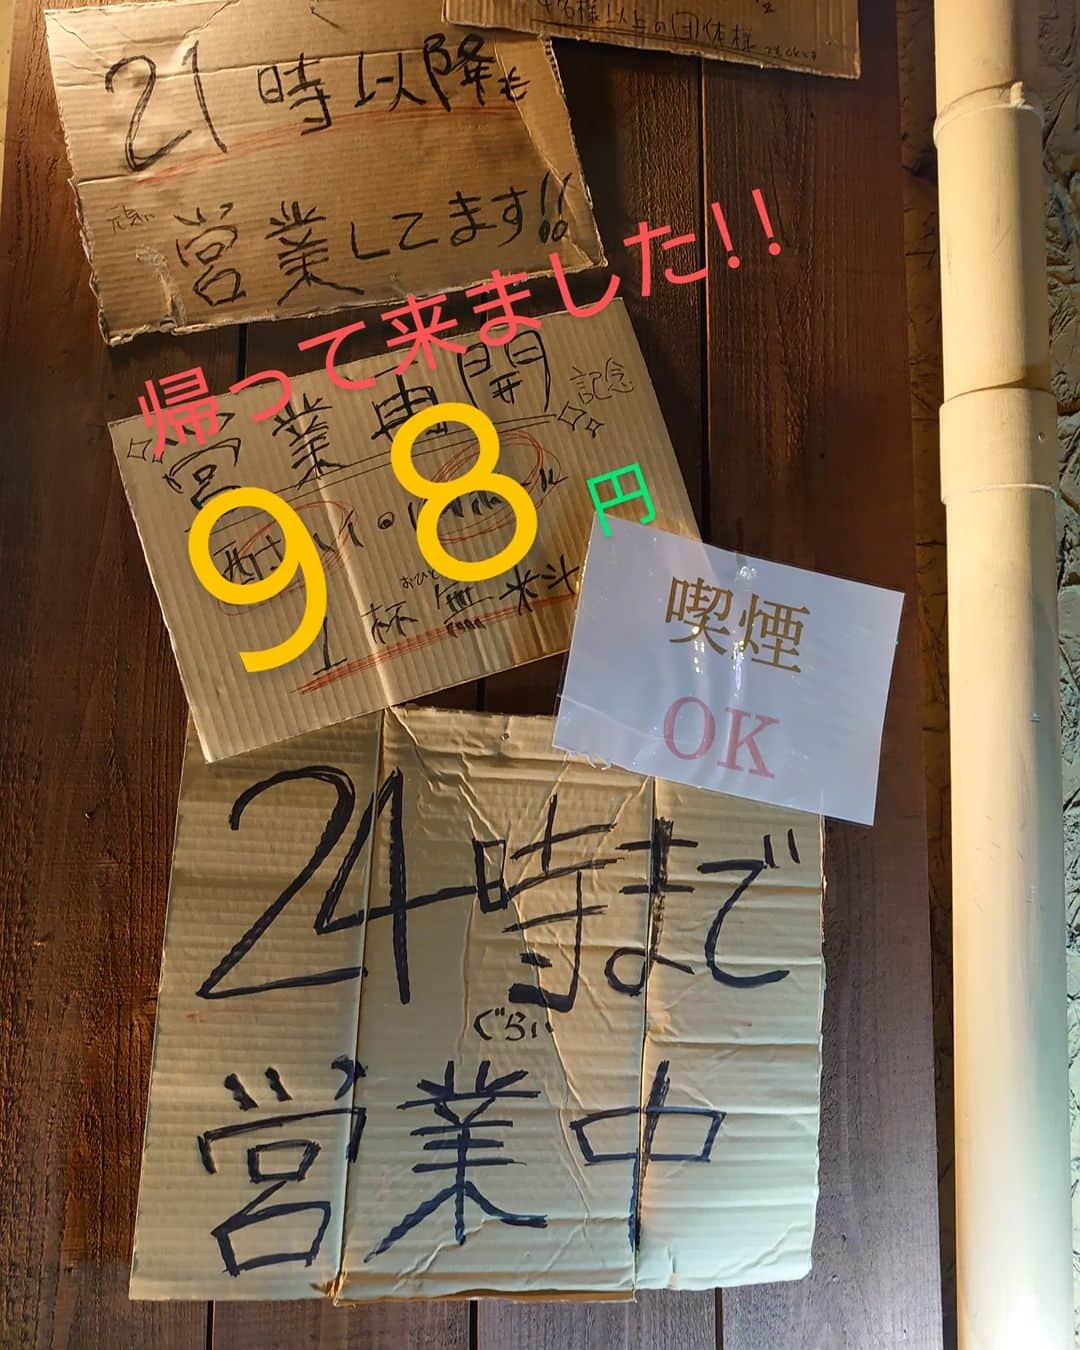 4名様以上の団体様
21時以降も
営業してます!!
帰って来ました!!
営業再開記念
98円
1杯無料
喫煙
OK
24時まで
ぐらい
営業中